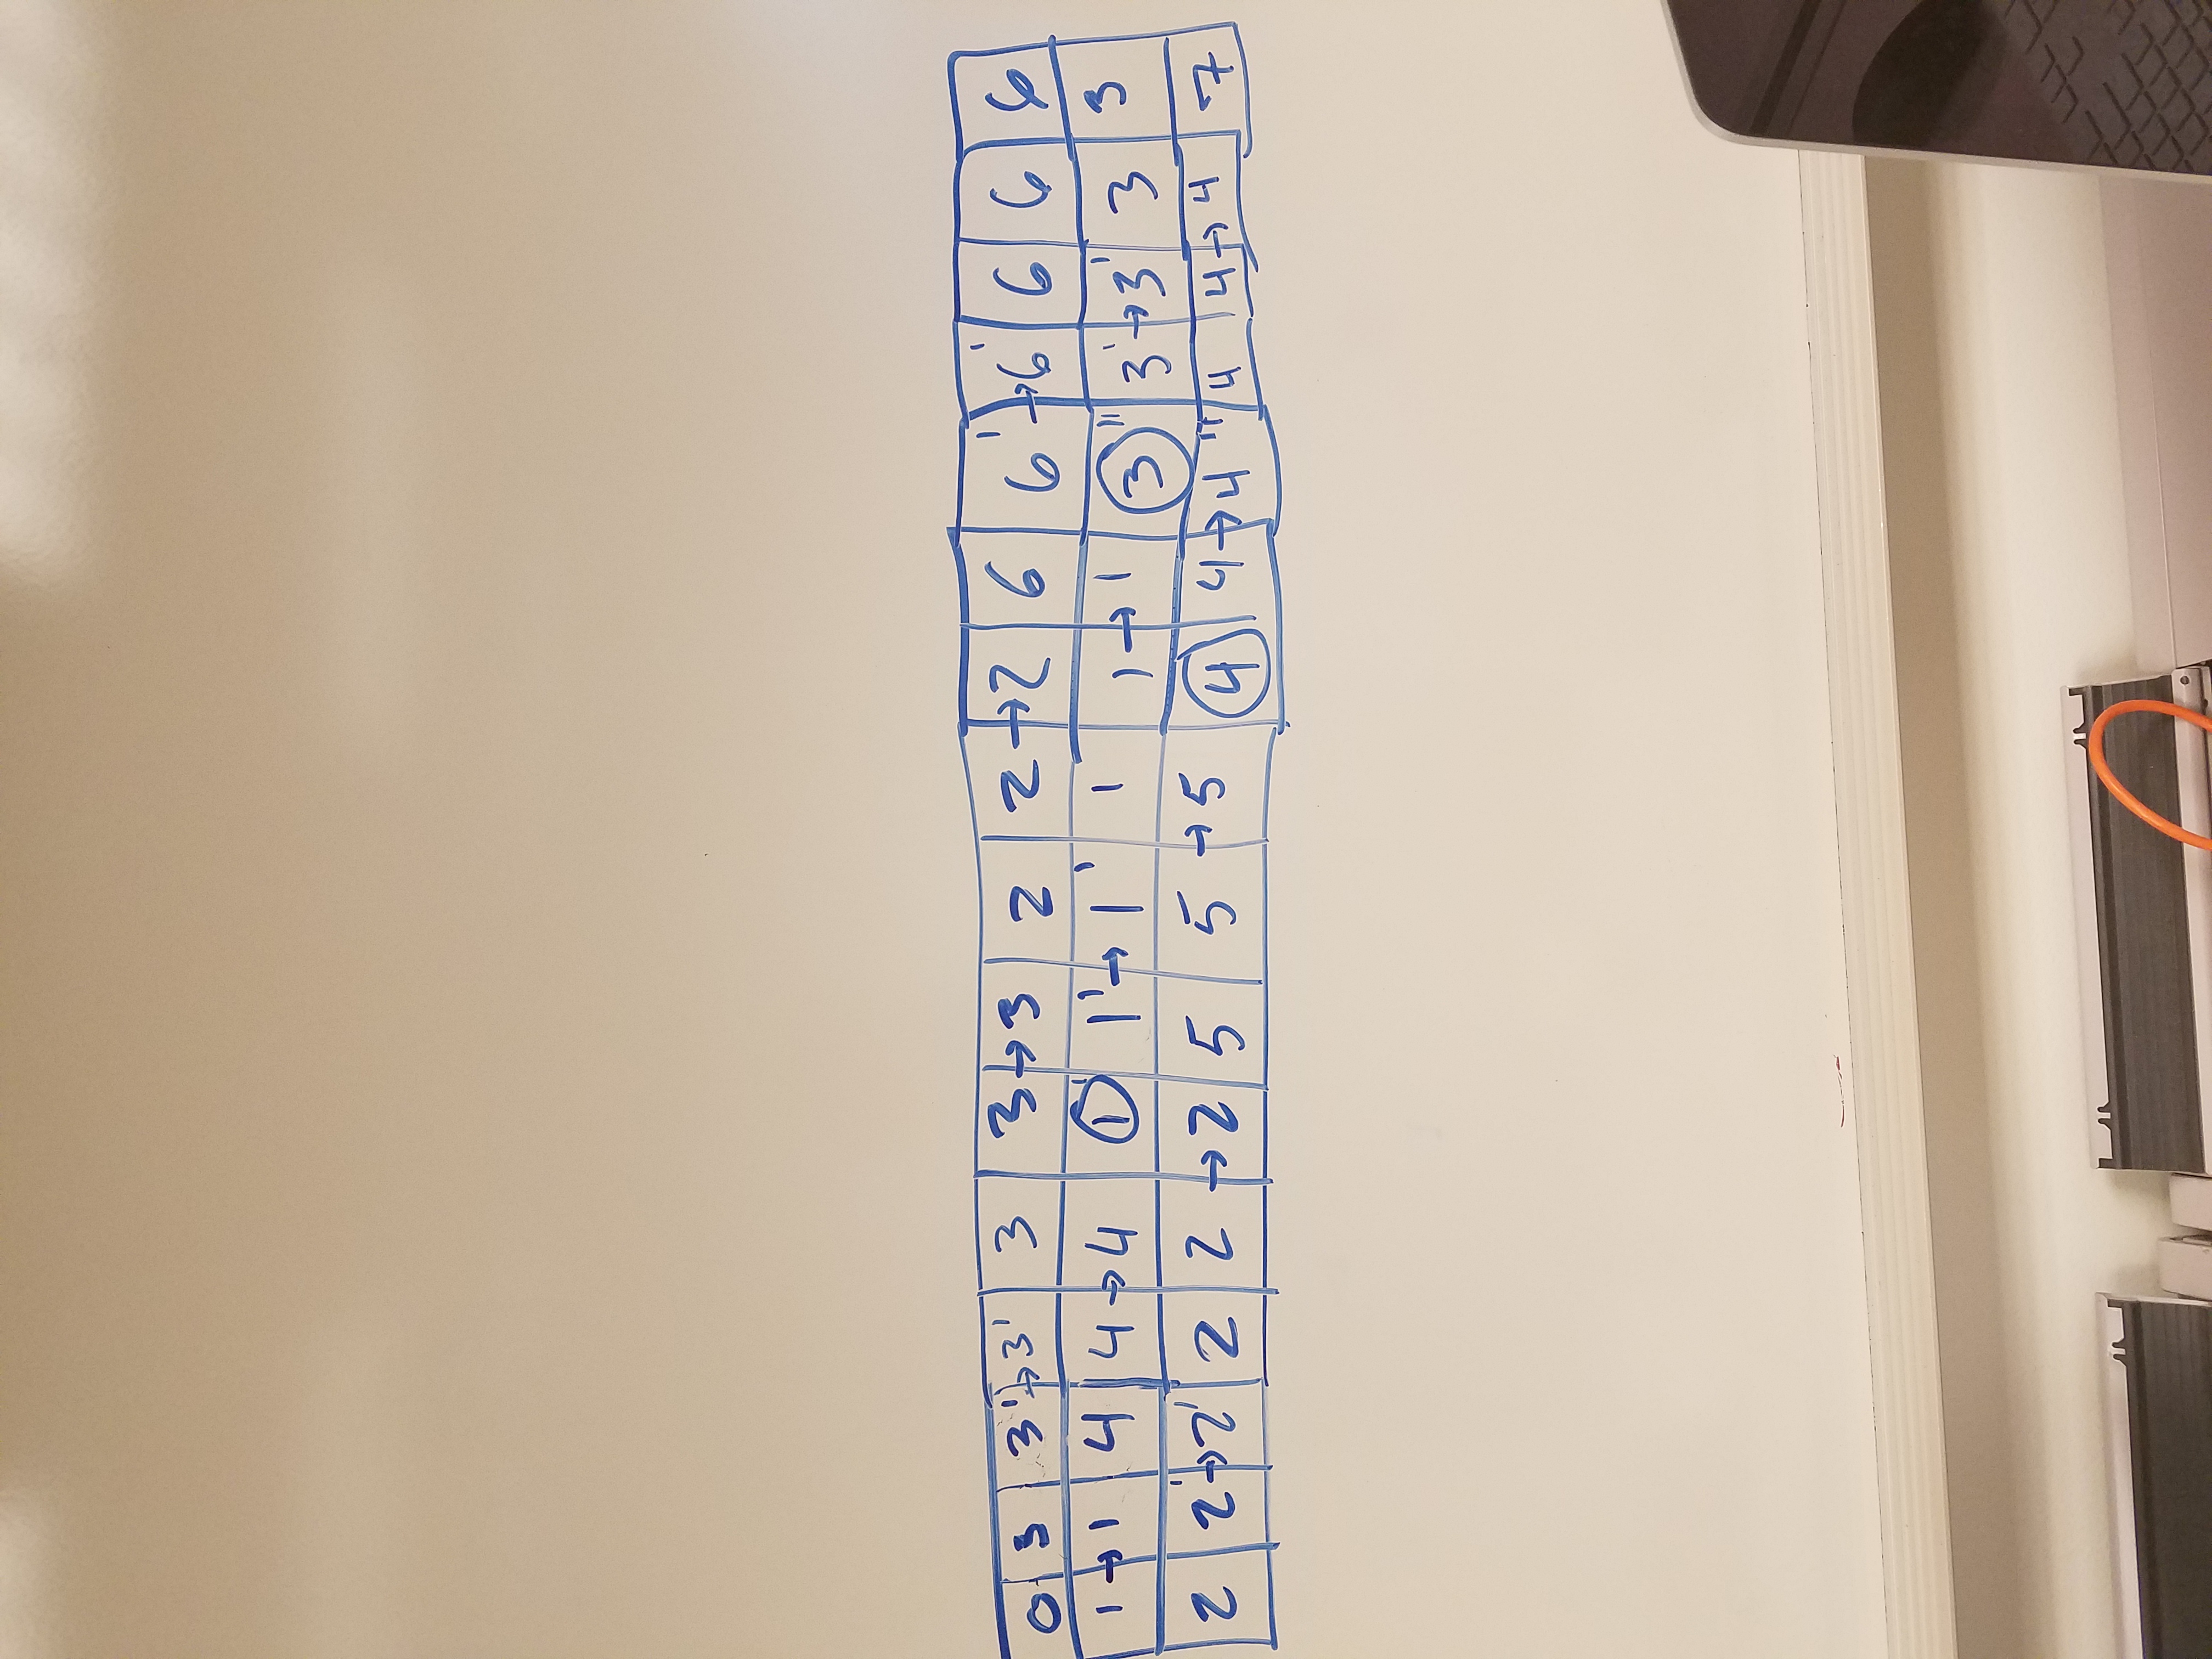 0 3 3' → 3' 3 3 → 3 2 2 → 2 6 6' → 6' 6 6 6
1 → 1 4 4 → 4 1' 1' → 1' 1 1 → 1 3'' 3' → 3' 3 3
2 2' → 2' 2 2 → 2 5 5 → 5 4 4 → 4'' 4 4 → 4 7